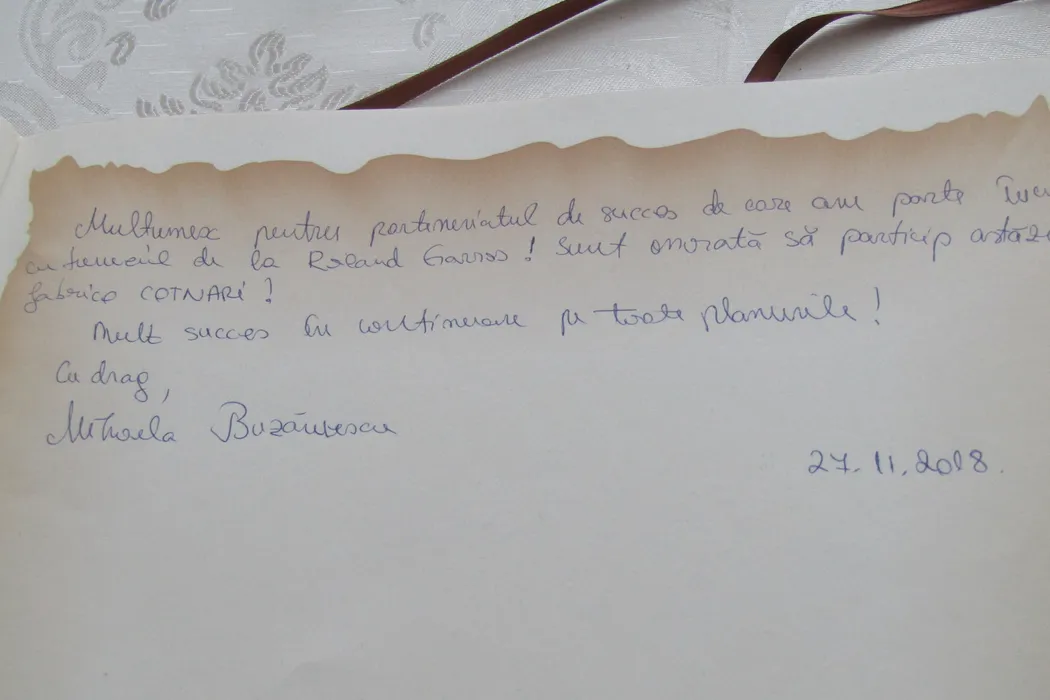 Multumesc pentru parteneriatul de succes de care am parte
cu turneul de la Roland Garros! Sunt onorată să particip astăzi
fabrica COTNARI!
Mult succes în continuare pe toate planurile!
Cu drag,
Mihaela Buzărnescu
27.11.2018.